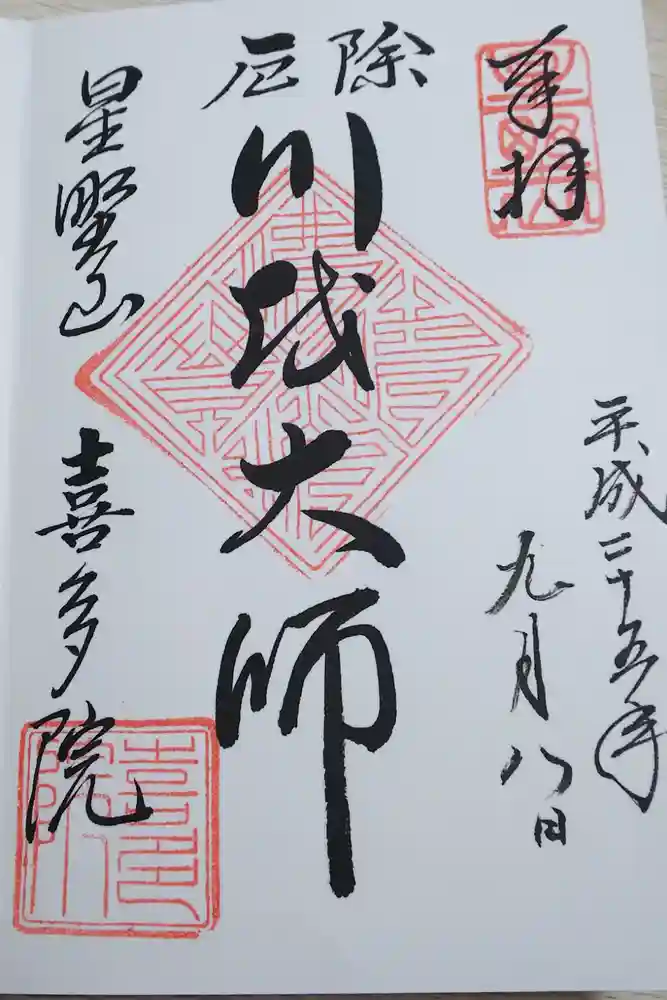 奉拝
平成二十五年
九月八日
厄除
川越大師
星野山
喜多院